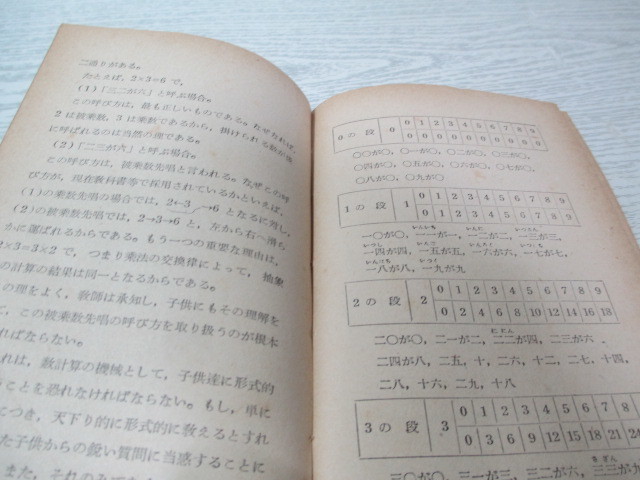 二通りがある。
たとえば、2×3=6 で、
(1)「三二が六」と呼ぶ場合。
この呼び方は、最も正しいものである。なぜなれば、
2は被乗数、3は乗数であるから、掛けられる数が後
に呼ばれるのは当然の理である。
(2)「二三が六」と呼ぶ場合。
この呼び方は、被乗数先唱と言われる。なぜこの呼
び方が、現在教科書等で採用されているかといえば、
(1)の乗数先唱の場合では、2←3 →6 となるに対し、
(2)の被乗数先唱では、2→3→6 と、左から右へ滑ら
かに運ばれるからである。もう一つの重要な理由は、
2×3=3×2 で、つまり乗法の交換律によって、抽象
の計算の結果は同一となるからである。
の理をよく、教師は承知し、子供にもその理解を
、この被乗数先唱の呼び方を取り扱うのが根本
ればならない。
れは、数計算の機械として、子供達に形式的
うことを恐れなければならない。もし、単に
につき、天下り的に形式的に教えるとすれ
た子供からの鋭い質問に当惑することに
また、それのみでなく
0の段 0 0 1 2 3 4 5 6 7 8 9
0 0 0 0 0 0 0 0 0 0
〇〇が〇、〇一が〇、〇二が〇、〇三が〇、
〇四が〇、〇五が〇、〇六が〇、〇七が〇、
〇八が〇、〇九が〇
1の段 1 0 1 2 3 4 5 6 7 8 9
0 1 2 3 4 5 6 7 8 9
いんいち いんに いっさん
一〇が〇、一一が一、一二が二、一三が三、
いっし いんご いんろく いっしち
一四が四、一五が五、一六が六、一七が七、
いんぱち いっく
一八が八、一九が九
2の段 2 0 1 2 3 4 5 6 7 8 9
0 2 4 6 8 10 12 14 16 18
二〇が〇、二一が二、二二が四、二三が六、
二四が八、二五、十、二六、十二、二七、十四、
二八、十六、二九、十八
3の段 3 0 1 2 3 4 5 6 7 8
0 3 6 9 12 15 18 21 24
さざん
三〇が〇、三一が三、三二が六、三三が九